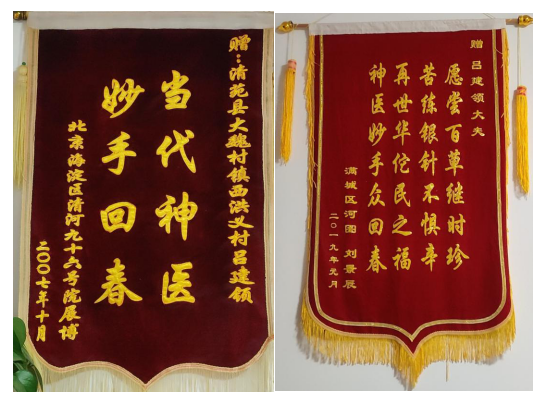 赠：清苑县大魏村镇西洪义村吕建领
当代神医
妙手回春
北京海淀区清河九十六号院展博
二00七年十月
赠 吕建领大夫
愿尝百草继时珍
苦练银针不惧辛
再世华佗民之福
神医妙手众回春
满城区河图 刘景辰
二〇一九年元月